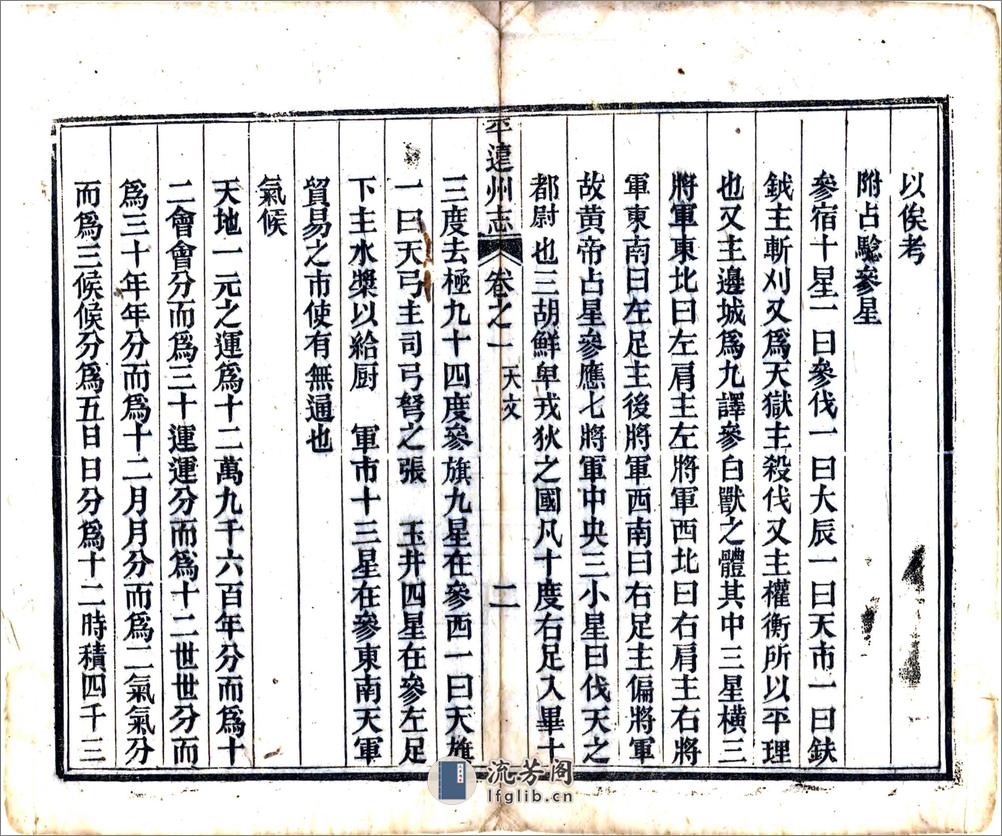 以俟考
附占騐參星
參宿十星一曰參伐一曰大辰一曰天市一曰鈇
鉞主斬刈又爲天獄主殺伐又主權衡所以平理
也又主邊城爲九譯參白獸之體其中三星橫三
將軍東北曰左肩主左將軍西北曰右肩主右將
軍東南曰左足主後將軍西南曰右足主偏將軍
故黃帝占星參應七將軍中央三小星曰伐天之
都尉也三胡鮮卑戎狄之國凡十度右足入畢十
平遠州志 卷之一 天文 二
三度去極九十四度參旗九星在參西一曰天旗
一曰天弓主司弓弩之張 玉井四星在參左足
下主水漿以給厨 軍市十三星在參東南天軍
貿易之市使有無通也
氣候
天地一元之運爲十二萬九千六百年分而爲十
二會會分而爲三十運運分而爲十二世世分而
爲三十年年分而爲十二月月分而爲二氣氣分
而爲三候候分爲五日日分爲十二時積四千三
流芳阁
lfglib.cn